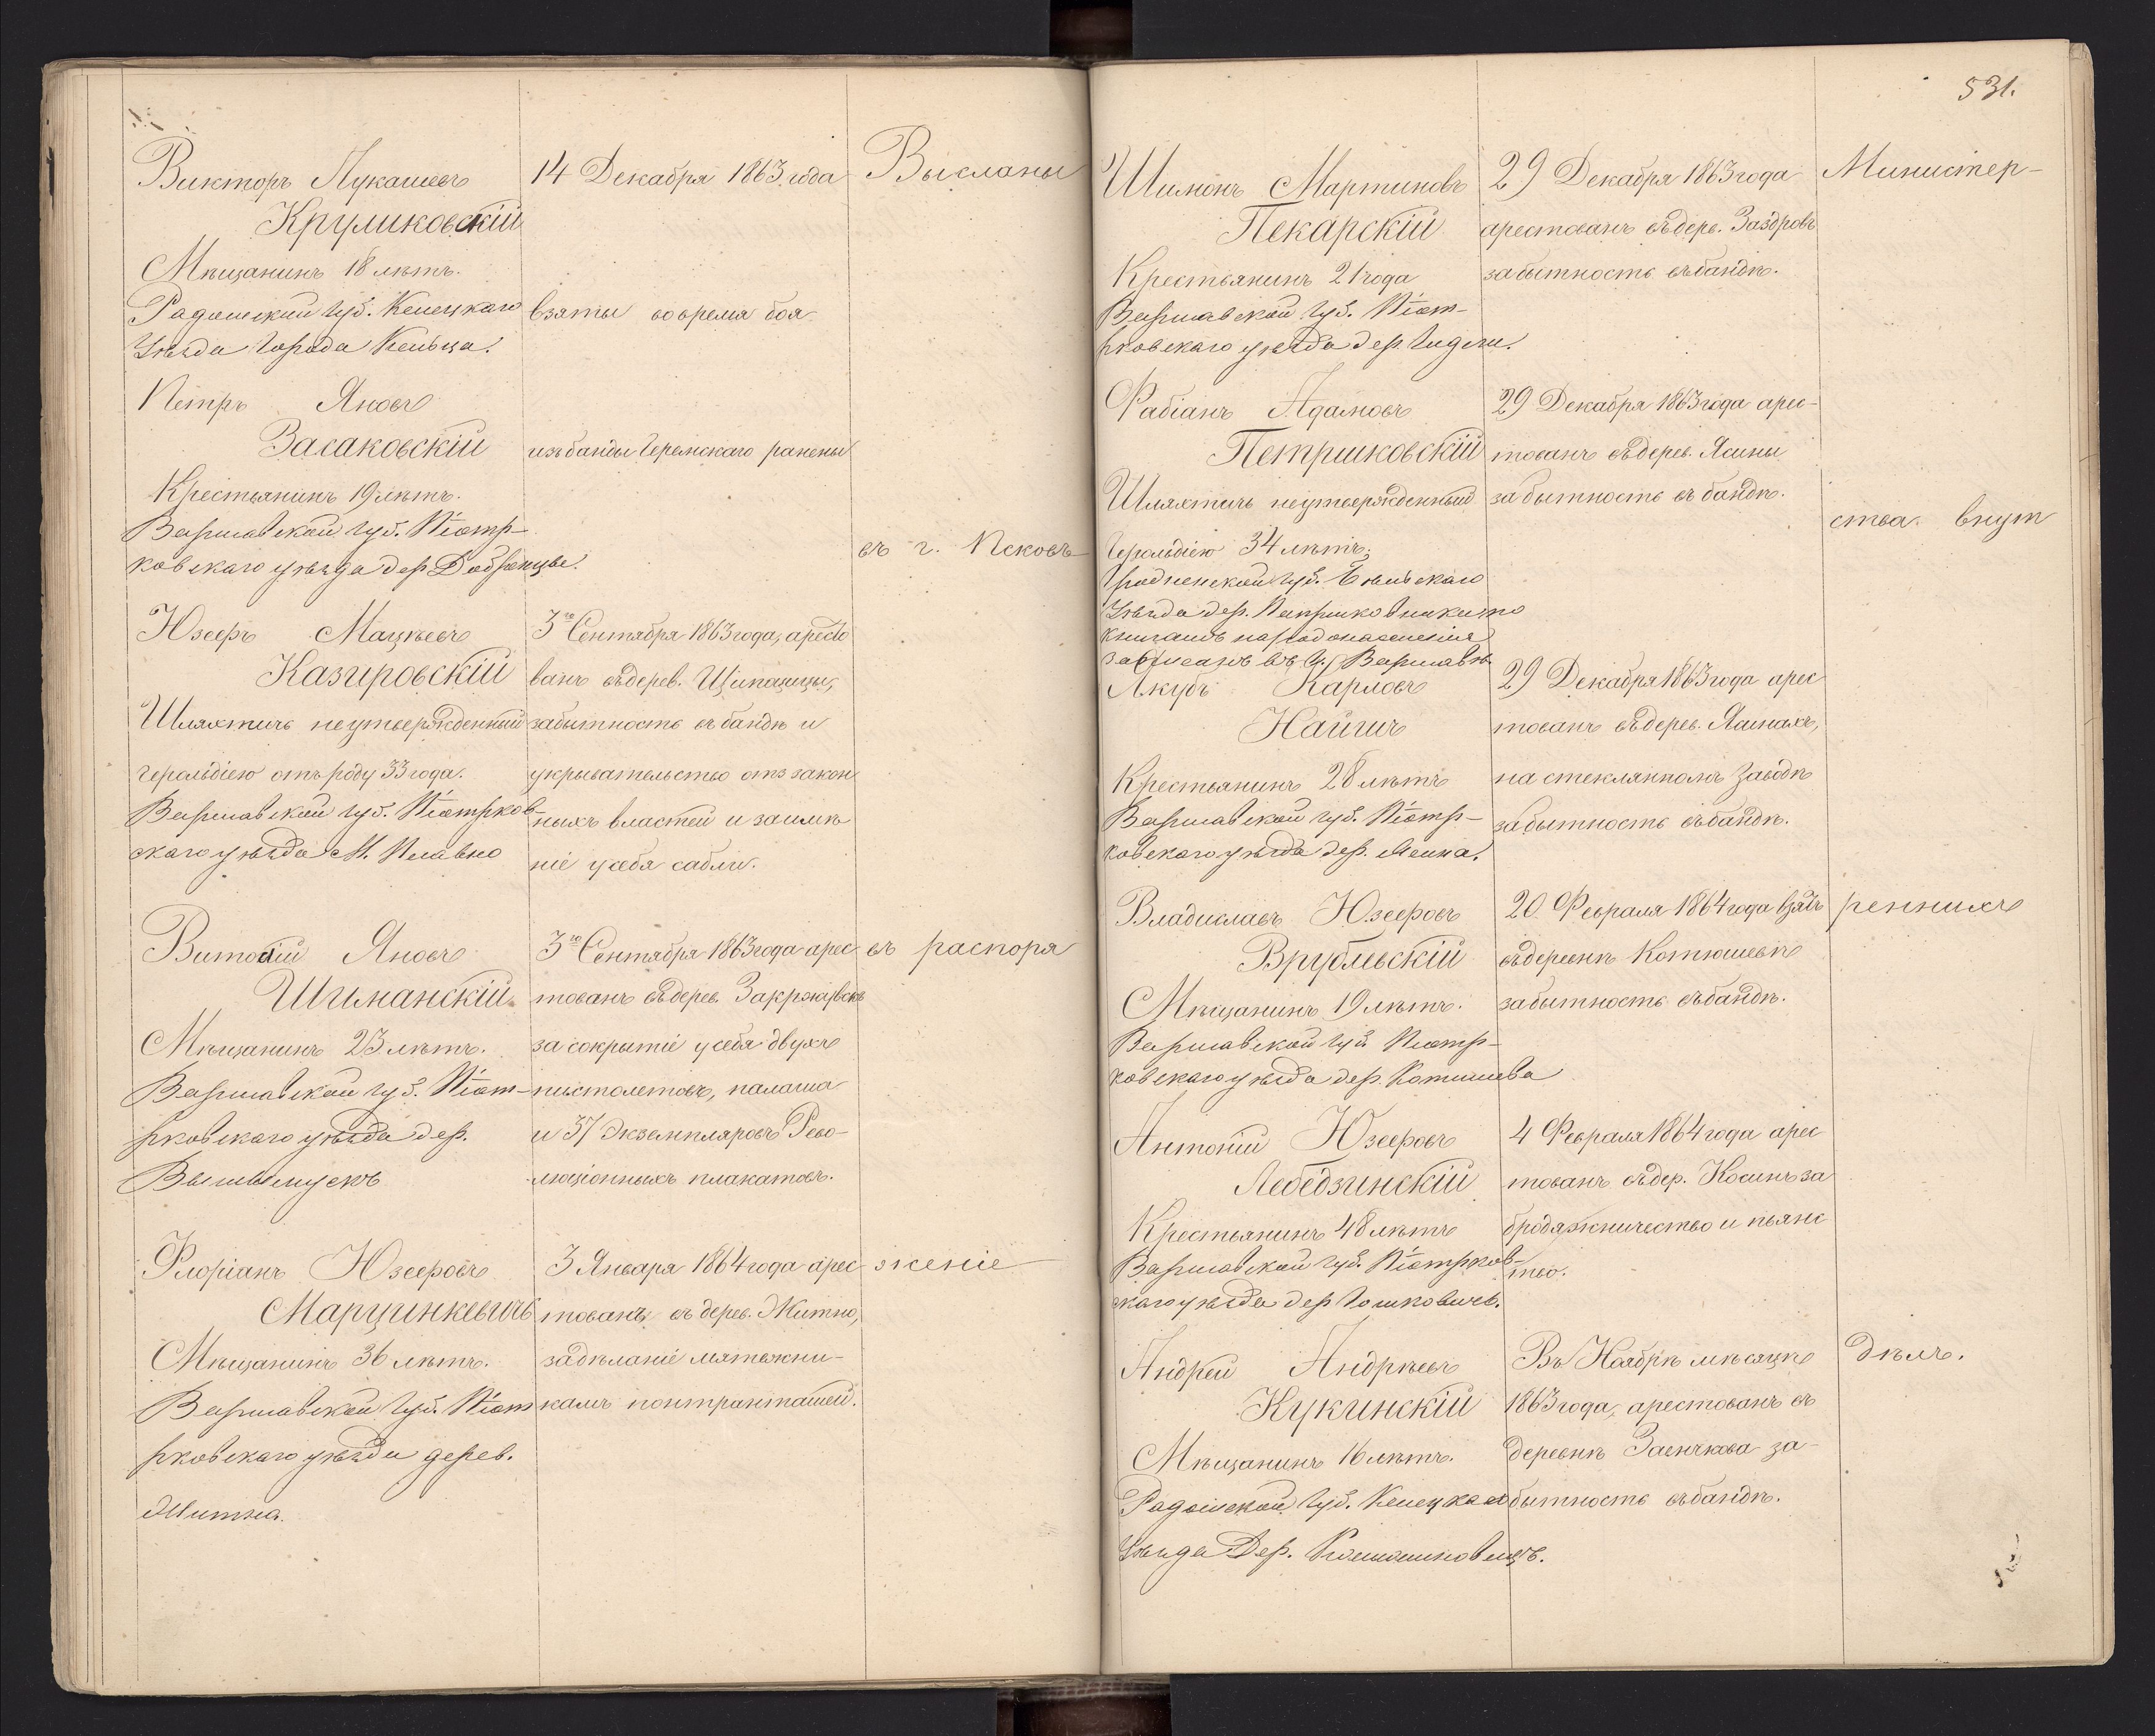 Викторъ Лукашевъ
Круликовскій
Мѣщанинъ 18 лѣтъ.
Радомской губ. Келецкаго
Уѣзда Города Кельца.
14 Декабря 1863 года
взяты во время боя
Петръ Яновъ
Засаковскій
Крестьянинъ 19 лѣтъ.
Варшавской губ. Піотр-
ковскаго уѣзда дер.
изъ банды ранены
Юзефъ Мацѣевъ
Казировскій
Шляхтичъ неутвержденный
герольдіею отъ роду 33 года.
Варшавской губ. Піотрков-
скаго уѣзда М. Плавно
3го Сентября 1863 года, аресто
ванъ въ дерев.
за бытность въ бандѣ и
укрывательство отъ закон
ныхъ властей и заимѣ
ніе у себя сабли.
Яновъ
Шиманскій
Мѣщанинъ 23 лѣтъ.
Варшавской губ. Піот-
рковскаго уѣзда дер.
3го Сентября 1863 года арес
тованъ въ дерев.
за сокрытіе у себя двухъ
пистолетовъ, палаша
и 37 Экземпляровъ Рево-
люціонныхъ плакатовъ.
Флоріанъ Юзефовъ
Марцинкевичъ
Мѣщанинъ 36 лѣтъ.
Варшавской Губ. Піот
рковскаго уѣзда дерев.
Житна.
3 Января 1864 года арес
тованъ въ дерев. Житно,
за дѣланіе мятежни-
камъ понтранташей.
Высланы
въ г. Псковъ
въ распоря
женіе
531.
Шимонъ Мартиновъ
Пекарскій
Крестьянинъ 21 года
Варшавской губ. Піот-
рковскаго уѣзда дер. Гидли.
29 Декабря 1863 года
арестованъ въ дерв. Заздровъ
за бытность въ бандѣ.
Фабіанъ Адамовъ
Петриковскій
Шляхтичъ неутвержденный
Герольдіею 34 лѣтъ,
Гродненской губ. Бѣльскаго
Уѣзда дер.
книгамъ народонаселенія
записанъ въ г. Варшавѣ.
29 Декабря 1863 года арес-
тованъ въ дерев. Ясины
за бытность въ бандѣ.
Якубъ Карловъ
Найгич
Крестьянинъ 28 лѣтъ
Варшавской губ. Піотр-
ковскаго уѣзда дер.
29 Декабря 1863 года арес
тованъ въ дерев. Ясинахъ,
на стеклянномъ заводѣ
за бытность въ бандѣ.
Владиславъ Юзефовъ
Врубльскій
Мѣщанинъ 19 лѣтъ.
Варшавской губ. Піотр-
ковскаго уѣзда дер.
20 Февраля 1864 года взятъ
въ деревнѣ
за бытность въ бандѣ.
Антоній Юзефовъ
Лебедзинскій
Крестьянинъ 48 лѣтъ
Варшавской губ. Піотрков-
скаго уѣзда дер. Гошковичъ.
4 Февраля 1864 года арес
тованъ въ дер. Косинъ за
бродяжничество и пьянс
тво.
Андрей Андрѣевъ
Кукинскій
Мѣщанинъ 16 лѣтъ.
Радомской Губ. Келецкаго
Уѣзда Дер.
Въ Ноябрѣ мѣсяцѣ
1863 года, арестованъ въ
деревнѣ за-
бытность въ бандѣ.
Министер-
ства внут
реннихъ
дѣлъ.